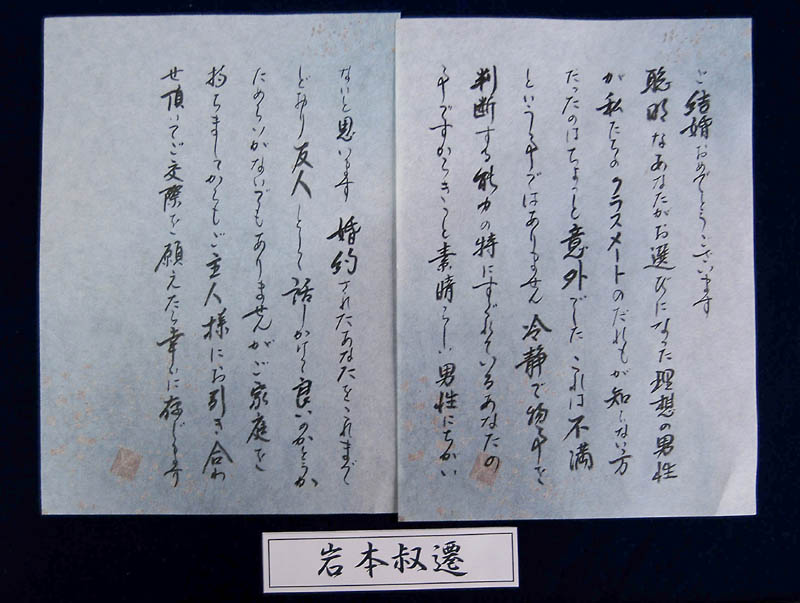 ご結婚おめでとうございます
聡明なあなたがお選びになった理想の男性
が私たちのクラスメートのだれもが知らない方
だったのはちょっと意外でした これは不満
という事ではありません 冷静で物事を
判断する能力の特にすぐれているあなたの
事ですからきっと素晴らしい男性にちがい
ないと思います 婚約されたあなたをこれまで
どおり友人として話しかけて良いのかどうか
ためらいがないでもありませんがご家庭を
持ちましてからもご主人様にお引き合わ
せ頂いてご交際を願えたら幸いに存じます
岩本叔遷